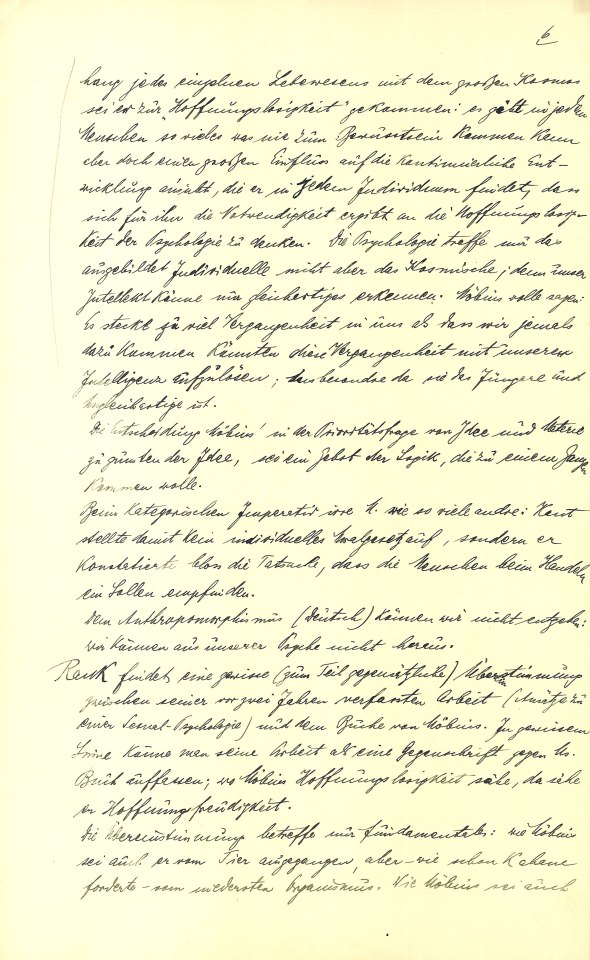 6
hang jedes einzelnen Lebewesens mit dem großen Kosmos
sei er zur "Hoffnungslosigkeit" gekommen: es gebe in jedem
Menschen so vieles was nie zum Bewusstsein kommen kann
aber doch einen großen Einfluss auf die kontinuierliche Ent-
wicklung ausübt, die er in jedem Individuum findet, dass
sich für ihn die Notwendigkeit ergibt an die Hoffnungslosig-
keit der Psychologie zu denken. Die Psychologie treffe nur das
ausgebildet Individuelle nicht aber das Kosmische; denn unser
Intellekt könne nur gleichartiges erkennen. Möbius wolle sagen:
Es steckt zu viel Vergangenheit in uns als dass wir jemals
dazu kommen könnten diese Vergangenheit mit unserer
Intelligenz aufzulösen; insbesondre da sie das Jüngere und
ungleichartige ist.
Die Entscheidung Möbius' in der Prioritätsfrage von Idee und Materie
zu gunsten der Idee, sei ein Gebot der Logik, die zu einem Ganzen
kommen wolle.
Beim kategorischen Imperativ irre M. wie so viele andre: Kant
stellte damit kein individuelles Moralgesetz auf, sondern er
konstatierte blos die Tatsache, dass die Menschen beim Handeln
ein Sollen empfinden.
Dem Anthropomorphismus (deutsch) können wir nicht entgehen:
wir können aus unserer Psyche nicht heraus.
Rank findet eine gewisse (zum Teil gegensätzliche) Übereinstimmung
zwischen seiner vor zwei Jahren verfassten Arbeit (Ansätze zu
einer Sexual-Psychologie) und dem Buche von Möbius. In gewissem
Sinne könne man seine Arbeit als eine Gegenschrift gegen Ms.
Buch auffassen; wo Möbius Hoffnungslosigkeit sähe, da sähe
er Hoffnungsfreudigkeit.
Die Übereinstimmung betreffe nur fundamentales: wie Möbius
sei auch er vom Tier ausgegangen, aber – wie schon Kahane
forderte – vom niedersten Organismus. Wie Möbius sei auch